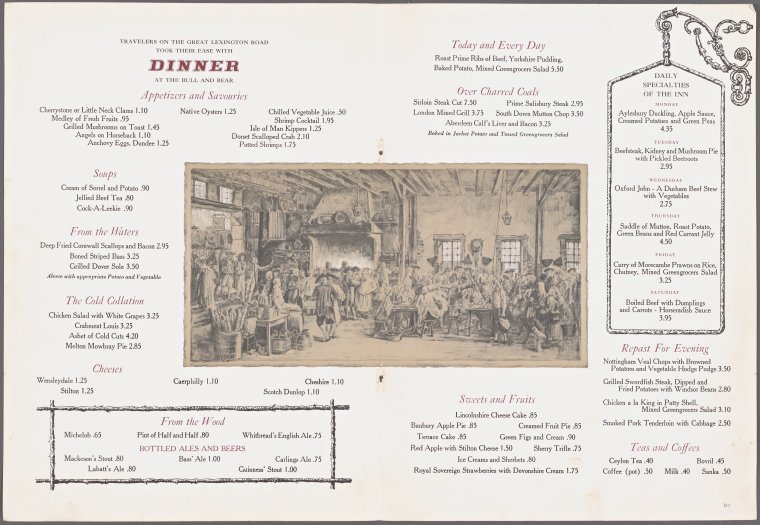 TRAVELERS ON THE GREAT LEXINGTON ROAD
TOOK THEIR EASE WITH
DINNER
AT THE BULL AND BEAR
Appetizers and Savouries
Cherrystone or Little Neck Clams 1.10
Medley of Fresh Fruits .95
Grilled Mushrooms on Toast 1.45
Angels on Horseback 1.10
Anchovy Eggs, Dundee 1.25
Native Oysters 1.25
Chilled Vegetable Juice .50
Shrimp Cocktail 1.95
Isle of Man Kippers 1.25
Dorset Scalloped Crab 2.10
Potted Shrimps 1.75
Soups
Cream of Sorrel and Potato .90
Jellied Beef Tea .80
Cock-A-Leekie .90
From the Waters
Deep Fried Cornwall Scallops and Bacon 2.95
Boned Striped Bass 3.25
Grilled Dover Sole 3.50
Above with appropriate Potato and Vegetable
The Cold Collation
Chicken Salad with White Grapes 3.25
Crabmeat Louis 3.25
Ashet of Cold Cuts 4.20
Melton Mowbray Pie 2.85
Cheeses
Wensleydale 1.25 Caerphilly 1.10 Cheshire 1.10
Stilton 1.25 Scotch Dunlop 1.10
From the Wood
Michelob .65 Pint of Half and Half .80 Whitbread's English Ale .75
BOTTLED ALES AND BEERS
Mackeson's Stout .80 Bass' Ale 1.00 Carlings Ale .75
Labatt's Ale .80 Guinness' Stout 1.00
Today and Every Day
Roast Prime Ribs of Beef, Yorkshire Pudding,
Baked Potato, Mixed Greengrocers Salad 5.50
Over Charred Coals
Sirloin Steak Cut 7.50 Prime Salisbury Steak 2.95
London Mixed Grill 3.75 South Down Mutton Chop 3.50
Aberdeen Calf's Liver and Bacon 3.25
Baked in Jacket Potato and Tossed Greengrocers Salad
Sweets and Fruits
Lincolnshire Cheese Cake .85
Banbury Apple Pie .85 Creamed Fruit Pie .85
Terrace Cake .85 Green Figs and Cream .90
Red Apple with Stilton Cheese 1.50 Sherry Trifle .75
Ice Creams and Sherbets .80
Royal Sovereign Strawberries with Devonshire Cream 1.75
DAILY
SPECIALTIES
OF THE INN
MONDAY
Aylesbury Duckling, Apple Sauce,
Creamed Potatoes and Green Peas
4.35
TUESDAY
Beefsteak, Kidney and Mushroom Pie
with Pickled Beetroots
2.95
WEDNESDAY
Oxford John - A Durham Beef Stew
with Vegetables
2.75
THURSDAY
Saddle of Mutton, Roast Potato,
Green Beans and Red Currant Jelly
4.50
FRIDAY
Curry of Morecambe Prawns on Rice,
Chutney, Mixed Greengrocers Salad
3.25
SATURDAY
Boiled Beef with Dumplings
and Carrots - Horseradish Sauce
3.95
Repast For Evening
Nottingham Veal Chops with Browned
Potatoes and Vegetable Hodge Podge 3.50
Grilled Swordfish Steak, Dipped and
Fried Potatoes with Windsor Beans 2.80
Chicken a la King in Patty Shell,
Mixed Greengrocers Salad 3.10
Smoked Pork Tenderloin with Cabbage 2.50
Teas and Coffees
Ceylon Tea .40 Bovril .45
Coffee (pot) .50 Milk .40 Sanka .50
D-1